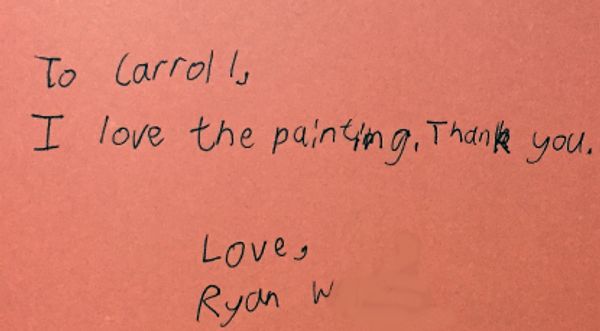 To Carroll,
I love the painting. Thank you.
Love,
Ryan W